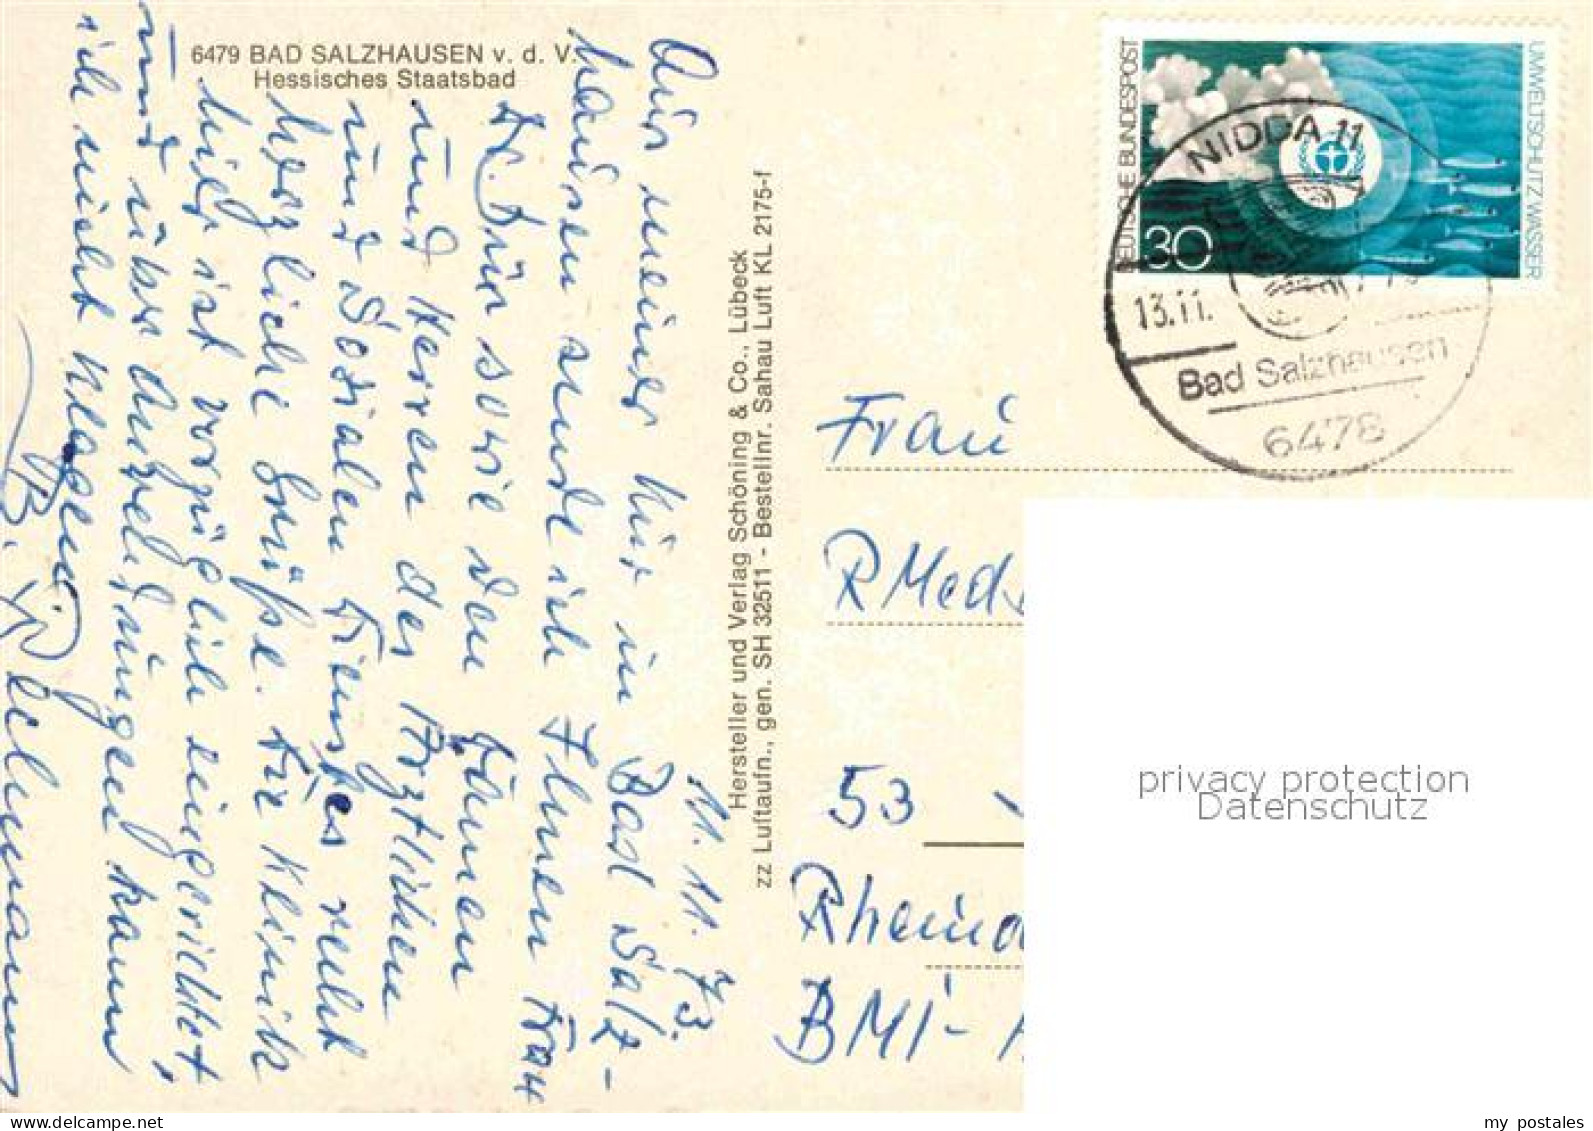 6479 BAD SALZHAUSEN v. d. V.
Hessisches Staatsbad
11.11.73.
Aus meiner Kur in Bad Salz-
hausen sende ich Ihnen Frau
Dr. Dün sowie den Damen
und Herren des Ärztlichen
und Sozialen Dienstes recht
herzliche Grüße. Die Klinik
hier ist vorzüglich eingerichtet,
und über Anwendungen kann
ich nicht klagen.
Hersteller und Verlag Schöning & Co., Lübeck
zz Luftaufn., gen. SH 32511 - Bestellnr. Sahau Luft KL 2175-f
DEUTSCHE BUNDESPOST
UMWELTSCHUTZ WASSER
30
NIDDA 11
13.11.
Bad Salzhausen
6478
Frau
RMed
53
Rhein
BMI-
privacy protection
Datenschutz
my postales